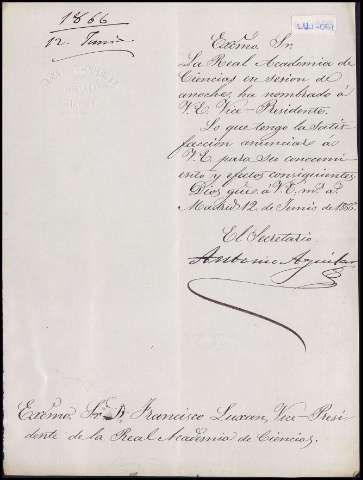 1866
12. Junio
Excmo. Sr.
La Real Academia de
Ciencias en sesion de
anoche, ha nombrado á
V. E. Vice-Presidente.
Lo que tengo la satis-
faccion anunciar á
V. E. para su conocimi-
ento y efectos consiguientes.
Dios gue. á V. E. ms. as.
Madrid 12 de Junio de 1866.
El Secretario
Antonio Aguilar
Excmo. Sr. D. Francisco Luxan, Vice-Presi-
dente de la Real Academia de Ciencias.